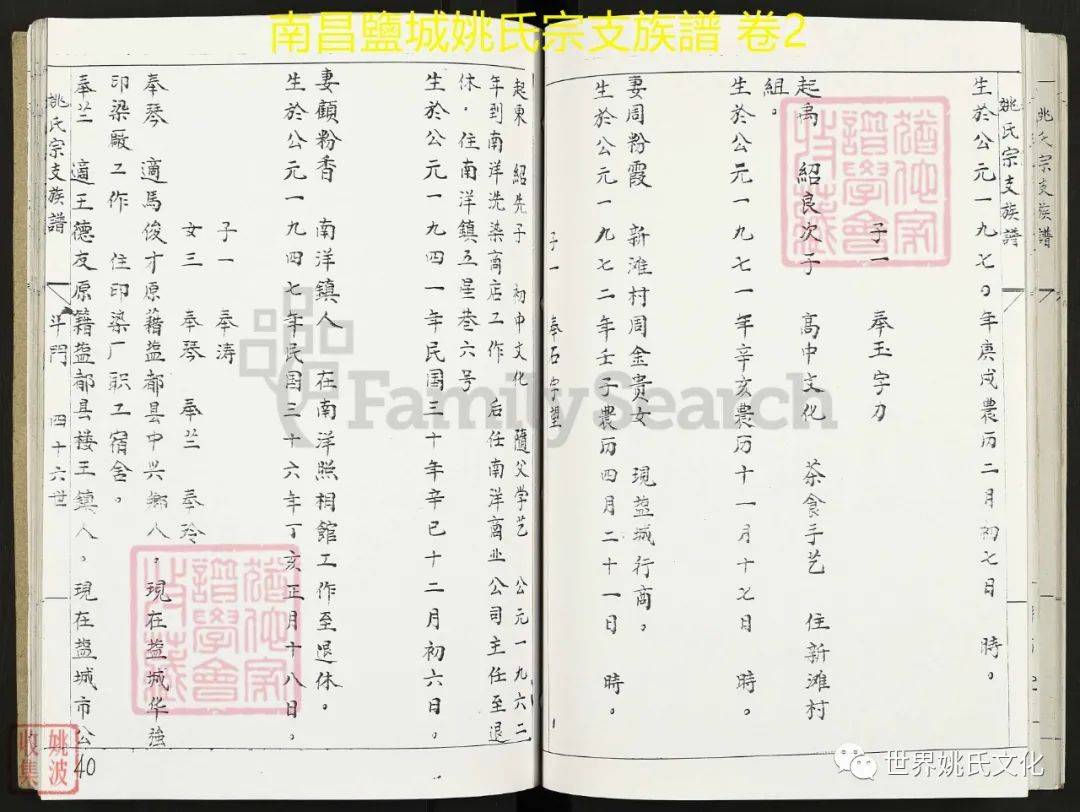 南昌鹽城姚氏宗支族譜 卷2
姚氏宗支族譜
姚氏宗支族譜
生於公元一九七〇年庚戌農历二月初七日 時。
子一 奉玉字刀
起禹 紹良次子 高中文化 茶食手艺 住新滩村
組。
生於公元一九七一年辛亥農历十一月十七日 時。
妻周粉霞 新滩村周金贵女 現盐城行商。
生於公元一九七二年壬子農历四月二十一日 時。
子一 奉石字望
起東 紹先子 初中文化 隨父学艺 公元一九六二
年到南洋洗染商店工作 后任南洋商业公司主任至退
休。住南洋鎮五星巷六号
生於公元一九四一年民国三十年辛巳十二月初六日。
妻顧粉香 南洋鎮人 在南洋照相館工作至退休。
生於公元一九四七年民国三十六年丁亥正月十八日。
子一 奉涛
女三 奉琴 奉兰 奉玲
奉琴 適馬俊才原藉盐都县中兴鄉人。現在盐城华強
印染廠工作 住印染厂职工宿舍。
奉兰 適王德友原籍盐都县楼王鎮人。現在盐城市公
姚氏宗支族譜 斗門 四十六世
40
猶他家
譜學會
收藏
猶他家
譜學會
收藏
FamilySearch
姚波
收集
世界姚氏文化